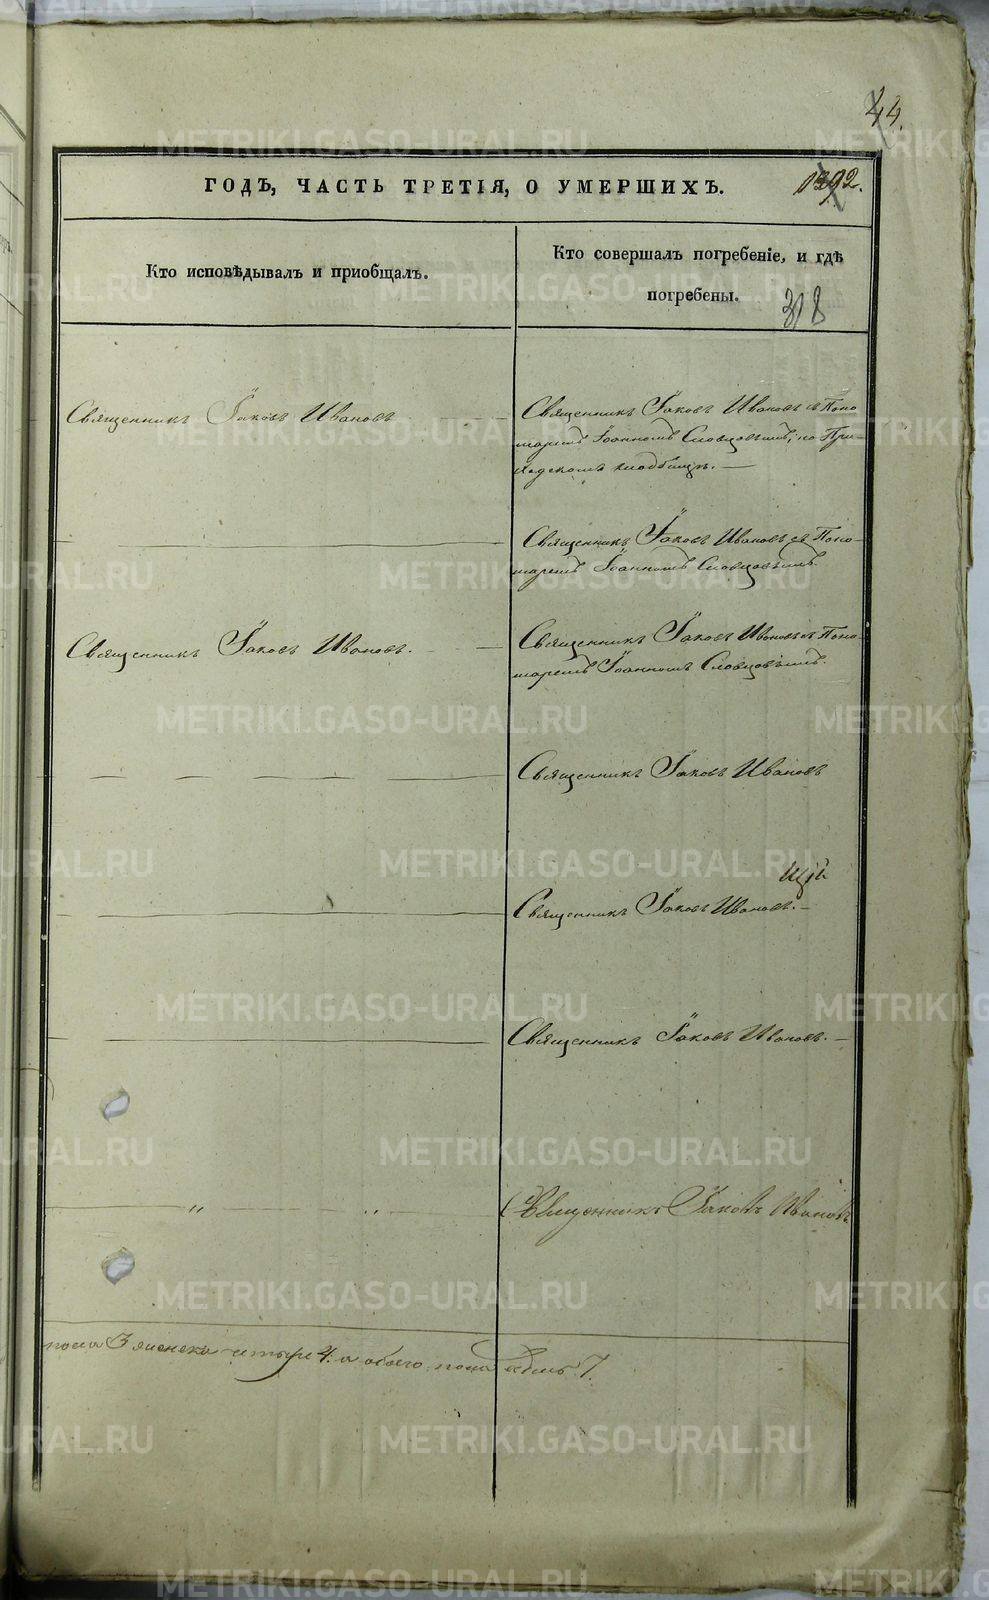 44.
ГОДЪ, ЧАСТЬ ТРЕТІЯ, О УМЕРШИХЪ.
Кто исповѣдывалъ и пріобщалъ.
Кто совершалъ погребеніе, и гдѣ
погребены.
318
Священникъ Іаковъ Ивановъ
Священникъ Іаковъ Ивановъ съ Поно
маремъ Іоанномъ Словцовымъ, на При-
ходскомъ кладбищѣ.
Священникъ Іаковъ Ивановъ съ Поно-
маремъ Іоанномъ Словцовымъ.
Священникъ Іаковъ Ивановъ.
Священникъ Іаковъ Ивановъ съ Поно-
маремъ Іоанномъ Словцовымъ.
Священникъ Іаковъ Ивановъ
Священникъ Іаковъ Ивановъ.
Священникъ Іаковъ Ивановъ.
Священникъ Іаковъ Ивановъ
пола 3 женска четыре 4. а обоего пола седмь 7.
METRIKI.GASO-URAL.RU